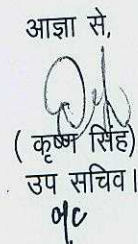 आज्ञा से,
( कृष्ण सिंह)
उप सचिव।